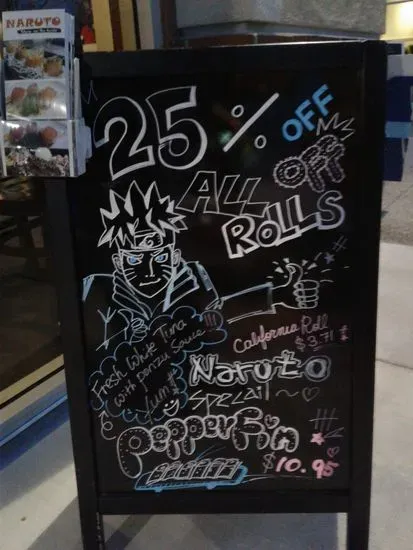 NARUTO
25% OFF
OFF
ALL
ROLLS
Fresh White Tuna
with ponzu Sauce!!!
Yum!!
California Roll
$3.71
Naruto
SPECIAIL ~
PepperFin
$10.95